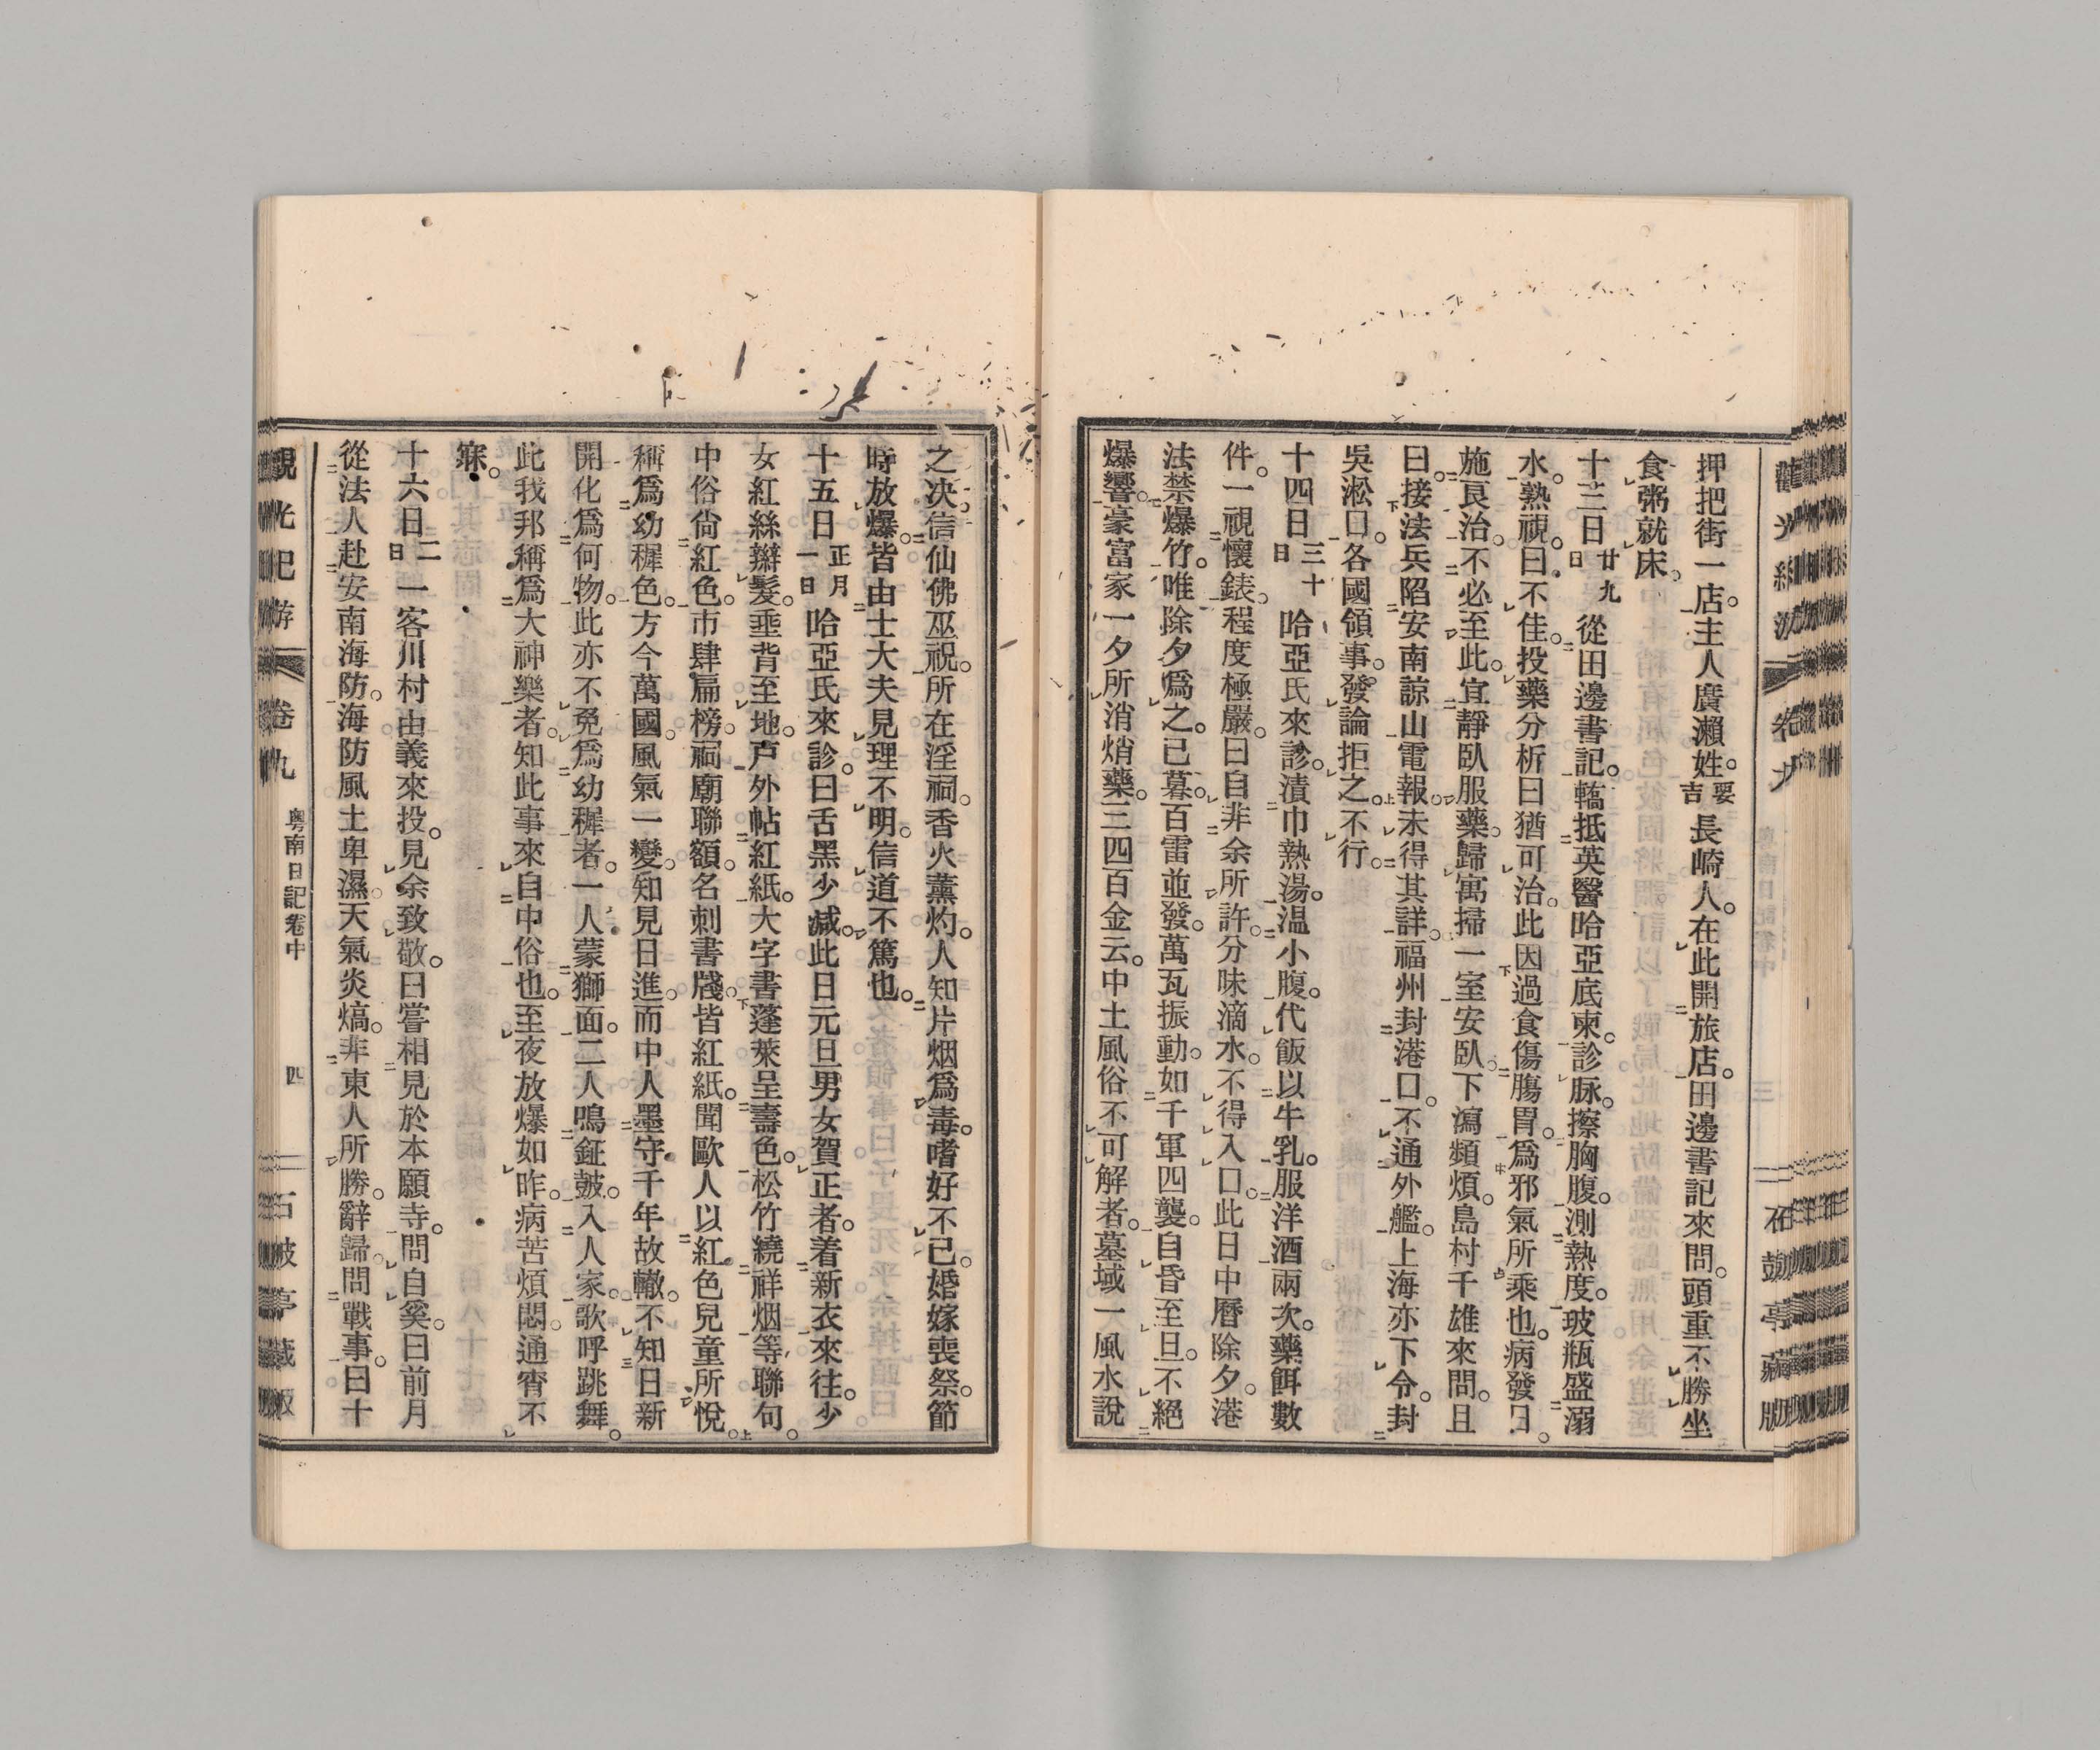 押把街一店。主人廣瀨姓。要吉長崎人。在此開旅店。田邊書記來問。頭重不勝坐
食粥就床。
十三日廿九日從田邊書記。轎抵英醫哈亞底東。診脉。擦胸腹。測熱度。玻瓶盛溺
水。熟視。曰不佳。投藥分析曰猶可治。此因過食傷膓胃。爲邪氣所乘也。病發日。
施良治。不必至此。宜靜臥服藥。歸寓掃一室安臥。下瀉頻煩。島村千雄來問。且
曰。接法兵陷安南諒山電報。未得其詳。福州封港口。不通外艦。上海亦下令。封
吳淞口。各國領事。發論拒之。不行。
十四日三十日哈亞氏來診。漬巾熱湯。温小腹。代飯以牛乳。服洋酒兩次。藥餌數
件。一視懷錶。程度極嚴。曰自非余所許。分味滴水。不得入口。此日中曆除夕。港
法禁爆竹。唯除夕爲之。已暮。百雷並發。萬瓦振動。如千軍四襲。自昏至旦。不絕
爆響。豪富家一夕所消焇藥。三四百金云。中土風俗不可解者。墓域一風水說
之决。信仙佛巫祝。所在淫祠。香火薰灼。人知片烟爲毒。嗜好不已。婚嫁喪祭。節
時放爆。皆由士大夫見理不明。信道不篤也。
十五日正月一日哈亞氏來診。曰舌黑少减。此日元旦男女賀正者。着新衣來往。少
女紅絲辮髮。垂背至地。戶外帖紅紙。大字書蓬萊呈壽色。松竹繞祥烟等聯句。
中俗尙紅色。市肆扁榜。祠廟聯額。名刺書牋。皆紅紙。聞歐人以紅色兒童所悅。
稱爲幼穉色。方今萬國。風氣一變。知見日進。而中人墨守千年故轍。不知日新
開化爲何物。此亦不免爲幼穉者。一人蒙獅面。二人鳴鉦皷。入人家。歌呼跳舞。
此我邦稱爲大神樂者。知此事來自中俗也。至夜放爆如昨。病苦煩悶。通宵不
寐。
十六日二日一客川村由義來投。見余致敬。曰嘗相見於本願寺。問自奚。曰前月
從法人赴安南海防。海防風土卑濕。天氣炎熇。非東人所勝。辭歸。問戰事。曰十
觀光紀游 卷九 粤南日記卷中 四 石皷亭藏版